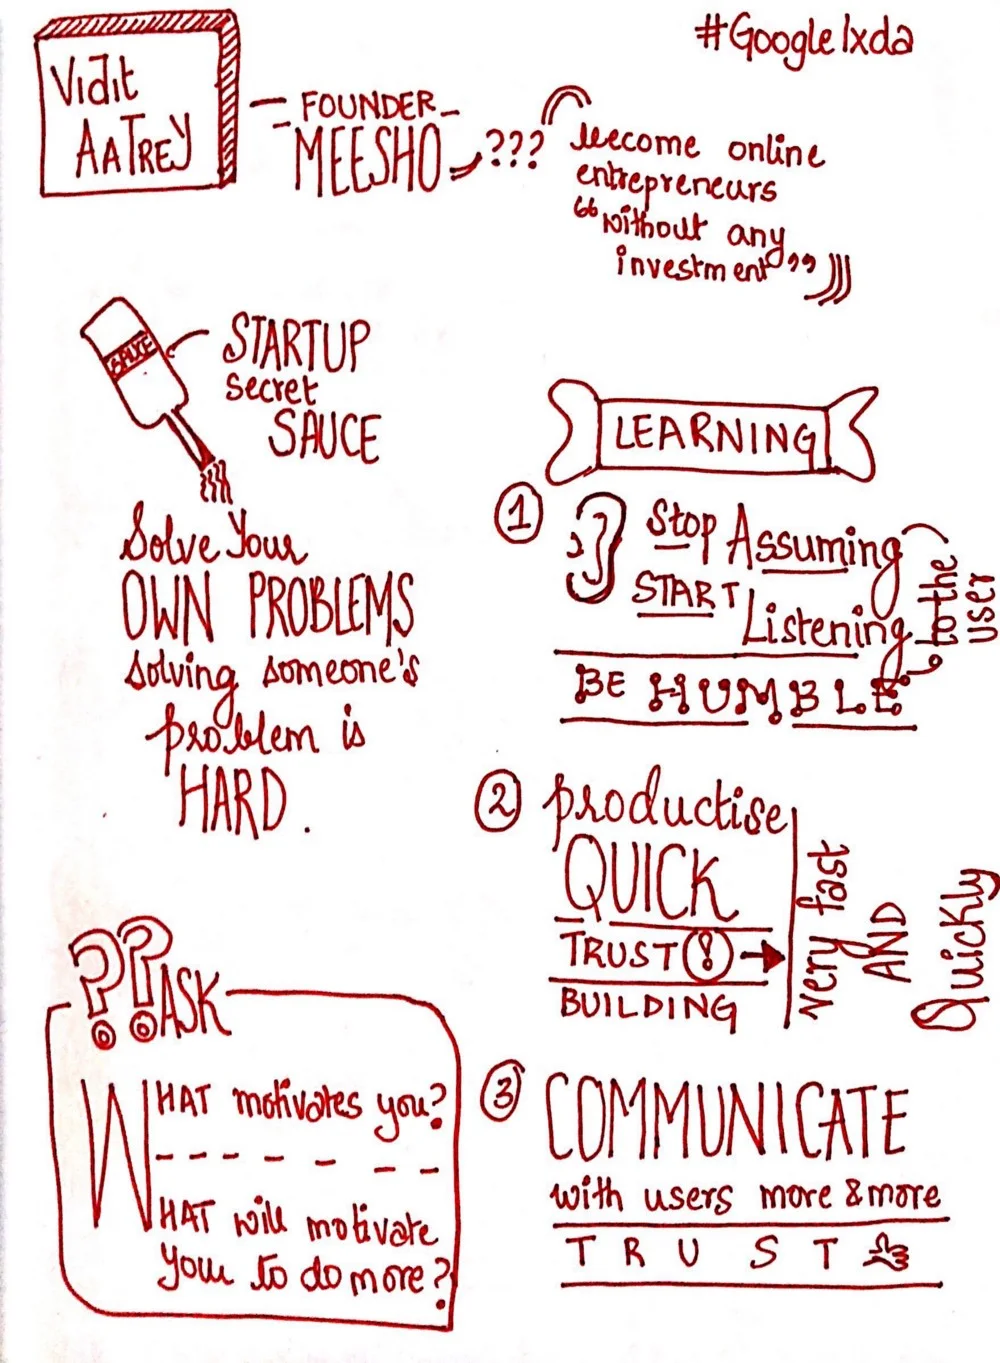 #GoogleIxda
Vidit
AaTREY
FOUNDER
MEESHO
???
become online
entrepreneurs
“without any
investment”
SAUCE
STARTUP
secret
SAUCE
Solve Your
OWN PROBLEMS
solving someone's
problem is
HARD.
LEARNING
1
Stop Assuming
START
Listening
to the
user
BE HUMBLE
2
productise
QUICK
TRUST !
BUILDING
very fast
AND
Quickly
3
COMMUNICATE
with users more & more
TRUST
??ASK
WHAT motivates you?
WHAT will motivate
you to do more?